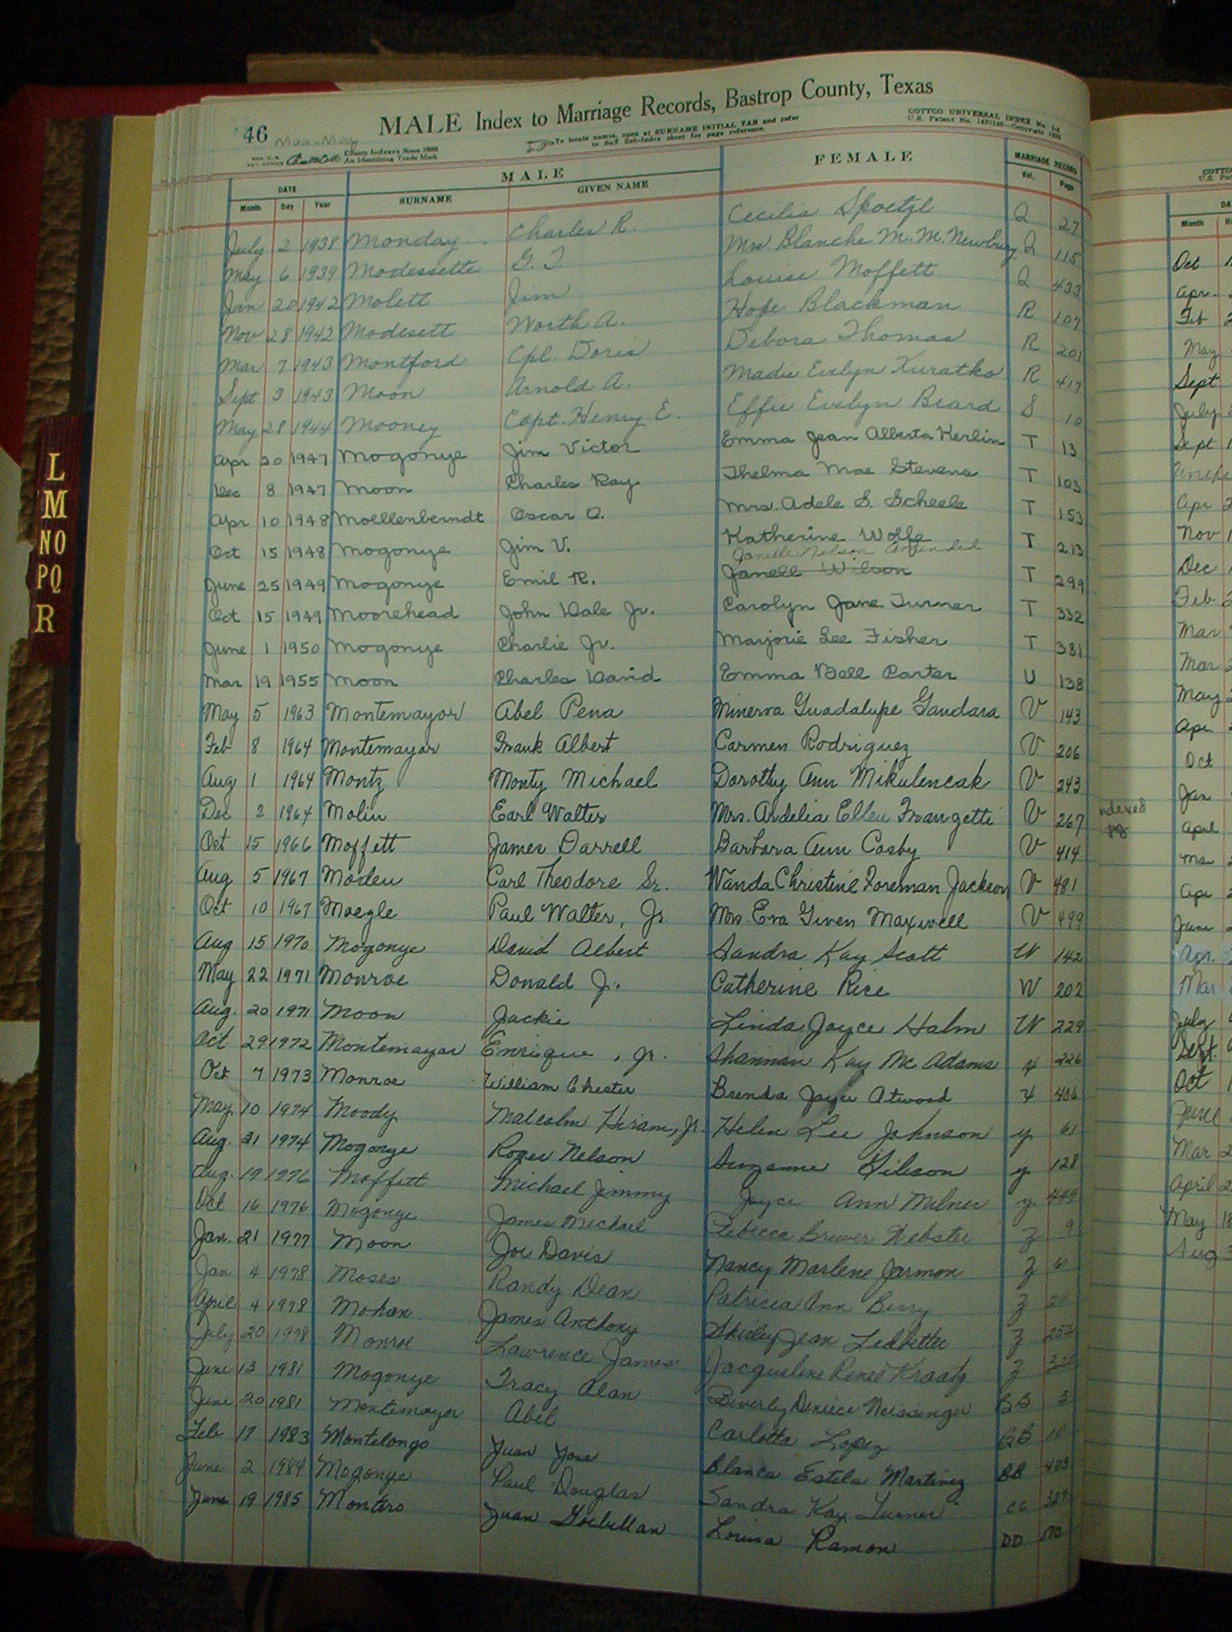 46
MALE Index to Marriage Records, Bastrop County, Texas
COTTCO UNIVERSAL INDEX
County Indexes Since 1888
An Identifying Trade Mark
To locate names, open at SURNAME INITIAL TAB and refer
MALE FEMALE MARRIAGE RECORD
DATE SURNAME GIVEN NAME Vol. Page
Month Day Year
July 2 1938 Monday Charles R. Cecilia Spoetzl Q 27
May 6 1939 Modessette G. T. Mrs. Blanche M. M. Newbury Q 115
Jan 20 1942 Molett Jim Louise Moffett Q 433
Nov 28 1942 Modesett Worth A. Hope Blackman R 107
Mar 7 1943 Montford Cpl. Doris Debora Thomas R 201
Sept 3 1943 Moon Arnold A. Madie Evelyn Kuratko R 417
May 28 1944 Mooney Capt. Henry E. Effie Evelyn Beard S 10
Apr 20 1947 Mogonye Jim Victor Emma Jean Alberta Kerlin T 13
Dec 8 1947 Moon Charles Ray Thelma Mae Stevens T 103
Apr 10 1948 Moellenberndt Oscar O. Mrs. Adele S. Scheele T 153
Oct 15 1948 Mogonye Jim V. Katherine Wolfe T 213
Janelle Nelson Amended
June 25 1949 Mogonye Emil R. Janell Wilson T 299
Oct 15 1949 Moorehead John Dale Jr. Carolyn Jane Turner T 332
June 1 1950 Mogonye Charlie Jr. Marjorie Lee Fisher T 381
Mar 19 1955 Moon Charles David Emma Bell Carter U 138
May 5 1963 Montemayor Abel Pena Minerva Guadalupe Gandara V 143
Feb 8 1964 Montemayor Frank Albert Carmen Rodriguez V 206
Aug 1 1964 Montz Monty Michael Dorothy Ann Mikulencak V 243
Dec 2 1964 Molin Earl Walter Mrs. Ardelia Ellen Frangetti V 267
Oct 15 1966 Moffett James Darrell Barbara Ann Cosby V 414
Aug 5 1967 Moden Carl Theodore Sr. Wanda Christine Foreman Jackson V 481
Oct 10 1967 Moegle Paul Walter, Jr. Mrs Eva Given Maxwell V 499
Aug 15 1970 Mogonye David Albert Sandra Kay Scott W 142
May 22 1971 Monroe Donald J. Catherine Rice W 202
Aug. 20 1971 Moon Jackie Linda Joyce Halm W 229
Oct 29 1972 Montemayor Enrique, Jr. Shannan Kay McAdams 226
Oct 7 1973 Monroe William Chester Brenda Joyce Atwood 406
May 10 1974 Moody Malcolm Hiram, Jr. Helen Lee Johnson y 61
Aug 31 1974 Mogonye Roger Nelson Suzanne Gibson y 128
Aug. 19 1976 Moffett Michael Jimmy Joyce Ann Milner y 449
Oct 16 1976 Mogonye James Michael Rebecca Brewer Webster Z 9
Jan. 21 1977 Moon Joe Davis Nancy Marlene Jarmon Z 61
Jan 4 1978 Moses Randy Dean Patricia Ann Berry Z
April 4 1978 Mohan James Anthony Shirley Jean Ledbetter Z 252
July 20 1978 Monroe Lawrence James Jacqueline Renee Kraatz Z
June 13 1981 Mogonye Tracy Alan Beverly Deniece Neissinger BB 3
June 20 1981 Montemayor Abel Carlotta Lopez BB 10
Feb 17 1983 Montelongo Juan Jose Blanca Estela Martinez BB 403
June 2 1984 Mogonye Paul Douglas Sandra Kay Turner CC 329
June 19 1985 Montero Juan Louisa Ramon DD 170
L
M
NO
PQ
R
indexed
Month
Oct
Apr.
Feb
May
Sept
July
Sept
Apr
Nov
Dec
Feb
Mar
Mar
May
Apr.
Oct
Jan
April
Mar
Apr
June
Apr.
Mar
July
Sept.
Oct
June
Mar 2
April 2
May 18
Aug 3